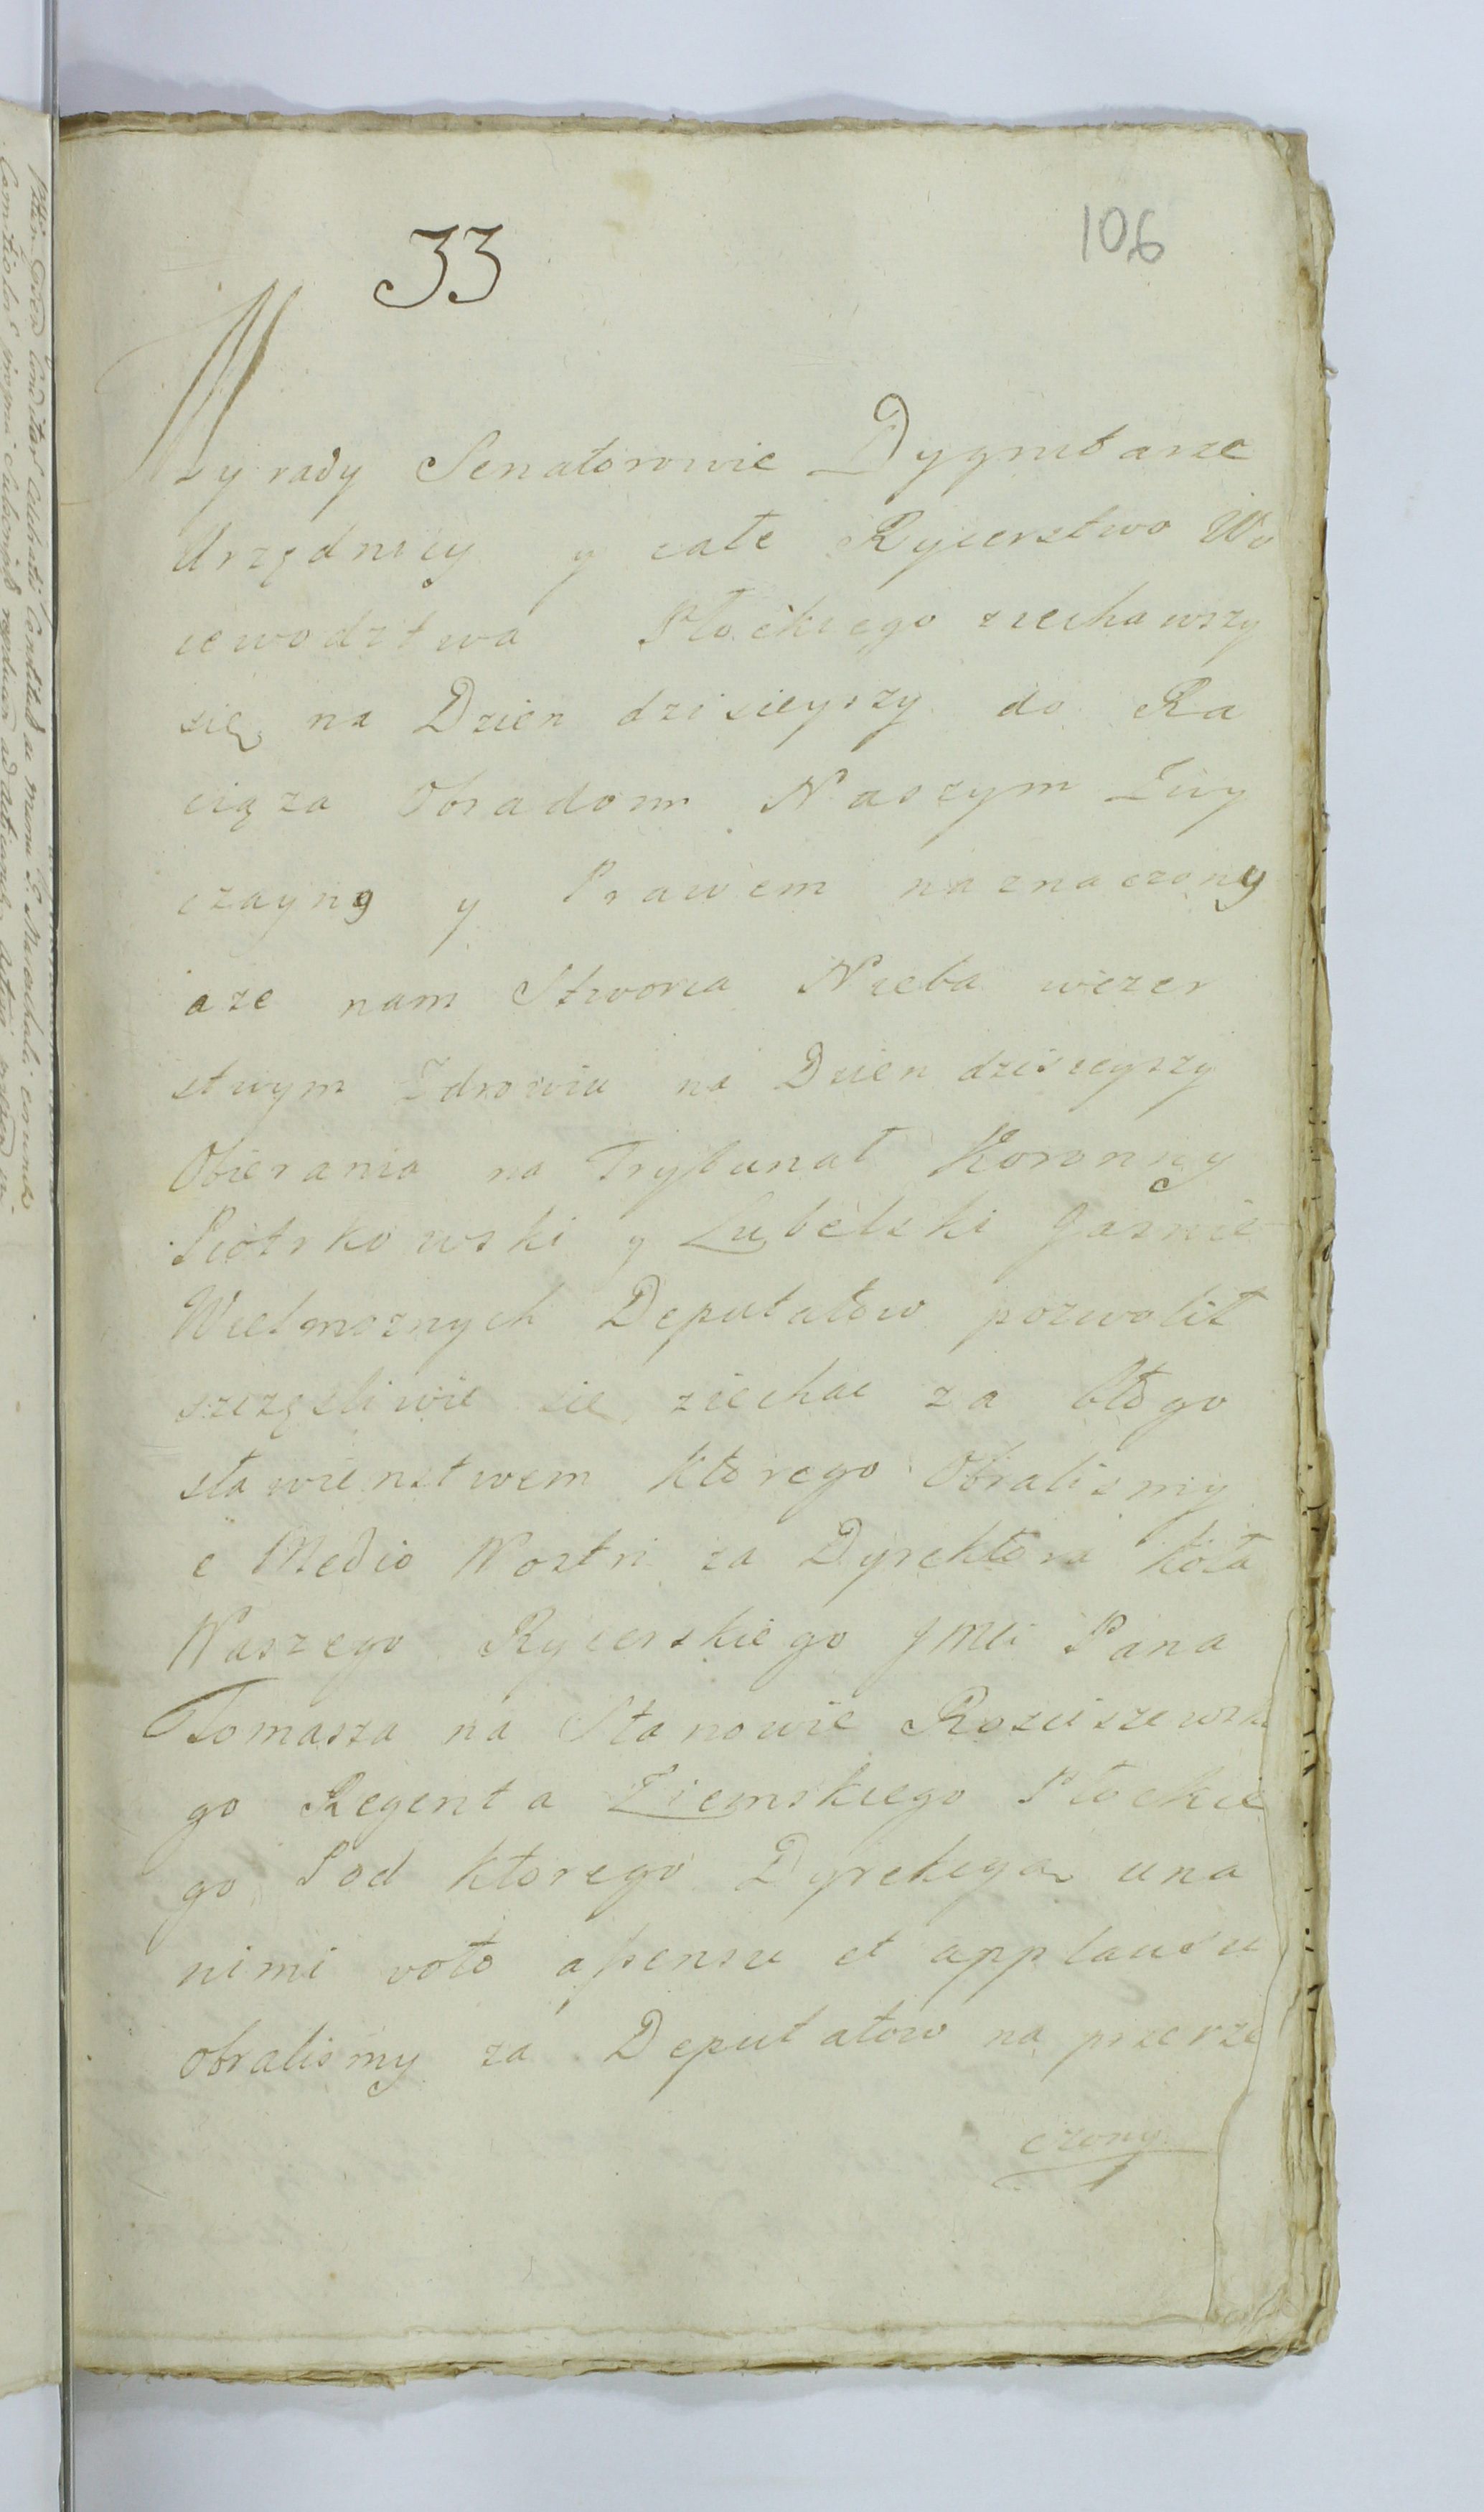 33
106
My rady Senatorowie Dygnitarze
Urzędnicy y całe Rycerstwo Wo
iewodztwa Płockiego ziechawszy
się na Dzien dzisieyszy do Ra
ciąza Obradom Naszym Zwy
czayny y Prawem naznaczony
aze nam Stworca Nieba wczer
stwym Zdrowiu na Dzien dzisieyszy
Obierania na Trybunał Koronny
Piotrkowski y Lubelski Jasnie
Wielmoznych Deputatow pozwolił
szczęsliwie się ziechac za błogo
sławienstwem ktorego Obralismy
e Medio Nostri za Dyrektora koła
Naszego Rycerskiego JMci Pana
Tomasza na Stanowie Rosciszewski
go Regenta Ziemskiego Płockie
go Pod ktorego Dyrekcyą una
nimi voto assensu et applausu
obralismy za Deputatow na przerze
czony